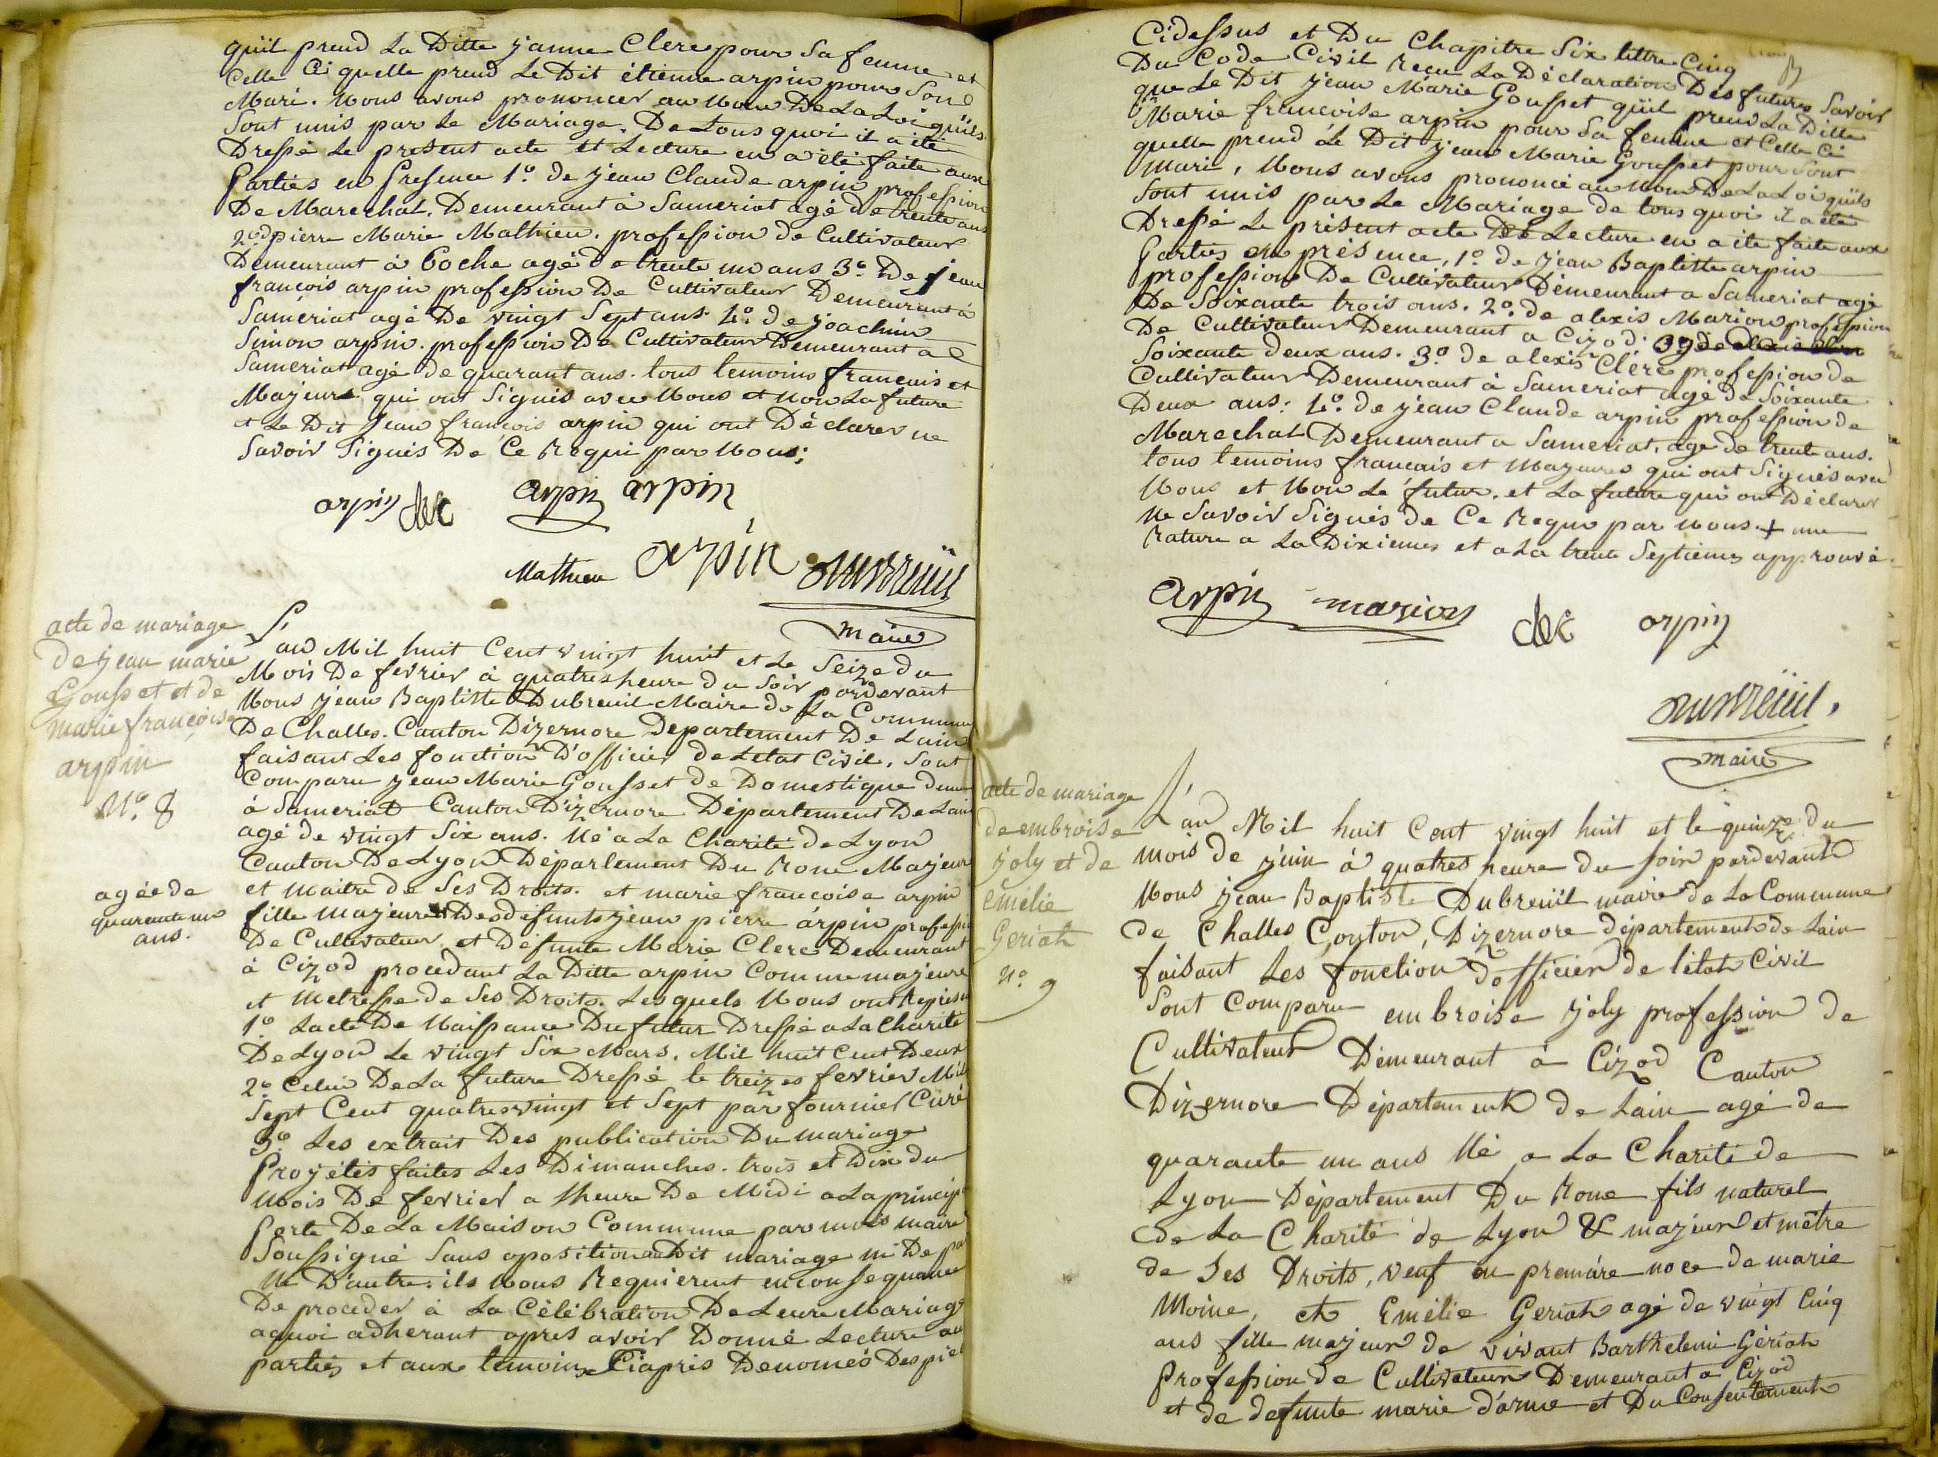 qu'il prend La Ditte jeanne Clerc pour Sa femme et
Celle Ci quelle prend Le Dit étienne arpin pour Son
Mari. Nous avons prononcer au Nom De La Loi qu'ils
Sont unis par Le Mariage. De tous quoi il a été
Dressé Le present acte et Lecture en a été faite aux
Parties en Presence 1º. de jean Claude arpin profession
De Marechal. Demeurant à Sameriat agé de trente ans
2º. pierre Marie Mathieu. profession de Cultivateur
Demeurant à Coche agé de trente un ans 3º. De jean
françois arpin profession De Cultivateur Demeurant à
Samériat agé De vingt Sept ans. 4º. de joachim
Simon arpin. profession De Cultivateur Demeurant a
Sameriat agé de quarant ans. tous temoins francais et
Majeurs qui ont Signés avec Nous et Non La future
et Le Dit jean francois arpin qui ont Déclarer ne
Savoir Signés De Ce Requi par Nous;
arpin clerc arpin arpin
Mathieu arpin Dubreüil
maire
acte de mariage
de jean marie
Gousset et de
marie françoise
arpin
Nº. 8
L'an Mil huit Cent vingt huit et Le Seize du
Mois De fevrier à quatres heure du Soir pardevant
Nous jean Baptiste Dubreuil Maire de La Commune
De Challes. Canton Dizernore Departement De Lain
faisant Les fonction D'officier de Letat Civil. Sont
Comparu jean Marie Gousset de Domestique deme
à Sameriat Canton Dizernore Département De Lain
agé de vingt Six ans. Né a La Charité de Lyon
Canton De Lyon Département Du Rone Majeur
et maitre de Ses Droits. et marie francoise arpin
agée de
quarente un
ans.
fille majeure Des défunts jean pierre arpin professi
De Cultivateur et Défunte Marie Clerc Demeurant
à Cizod procedant La Ditte arpin Comme majeure
et metresse de Ses Droits. Lesquels Nous ont Represen
1º Lacte De Naissance Du futur Dressé a La Charité
De Lyon Le vingt Six Mars. Mil huit Cent Deux
2º Celui De La future Dressé le treizes fevrier Mil
Sept Cent quatrevingt et Sept par fournier Curé
3º Les extrait Des publication Du mariage
Projétés faites Les Dimanches. trois et Dix du
Mois De fevrier a lheure De Midi a La princip
Porte De La Maison Commune par nous maire
Soussigné Sans oposition au Dit mariage ni De par
Ni D'autre. ils Nous Requierent en conseqnance
De proceder à La Célébration De Leur Mariage
aquoi adherant apres avoir Donné Lecture au
parties et aux temoins Ciapris Denomés Des pie
Cidessus et Du Chapitre Six tittre Cinq
Du Code Civil Recu La Déclaration Des futures Savoir
que Le Dit jean Marie Gousset qu'il prend La Ditte
Marie francoise arpin pour Sa femme et Celle Ci
quelle prend Le Dit jean Marie Gousset pour Sont
Mari, Nous avons prononcé au Nom De La Loi qu'ils
Sont unis par Le Mariage de tous quoi il a été
Dressé Le présent acte Lecture en a été faite aux
Parties en présence, 1º. de jean Baptiste arpin
profession De Cultivateur Demeurant a Sameriat agé
De Soixante trois ans. 2º. de alexis Marion profession
De Cultivateur Demeurant a Cizod. agé de
Soixante deux ans. 3º de alexis Clerc profession de
Cultivateur Demeurant à Sameriat agé de Soixante
Deux ans. 4º. de jean Claude arpin profession de
Marechal Demeurant a Sameriat. age de trente ans.
tous temoins francais et Majeures qui ont Signés avec
Nous et Non Le futur. et La future qui ont Déclarer
Ne Savoir Signés de Ce Requs par nous + une
Rature a La Dixiemes et a La trente Septiemes approuvé.
arpin marion clerc arpin
Dubreüil.
maire
acte de mariage
de embroise
joly et de
Emélie
Geriat
nº. 9
L'an Mil huit Cent vingt huit et le quinze du
mois de juin à quatres heure du soir pardevant
Nous jean Baptiste Dubreüil maire de La Commune
de Challes Conton, Dizernore département de Lain
faisant Les fonction d'officier de l'état Civil
Sont Comparu embroise joly profession de
Cultivateur Démeurant à Cizod Canton
Dizernore Département de Lain agé de
quarante un ans Né a La Charité de
Lyon Département Du Rone fils naturel
de La Charité de Lyon & majeur et mêtre
de Ses Droits, veuf en premiére noce de marie
Moine, et Emélie Geriat agé de vingt Cinq
ans fille majeur de vivant Barthelemi Gériat
Profession de Cultivateur Demeurant a Cizod
et de defunte marie d'arme et Du Consentement